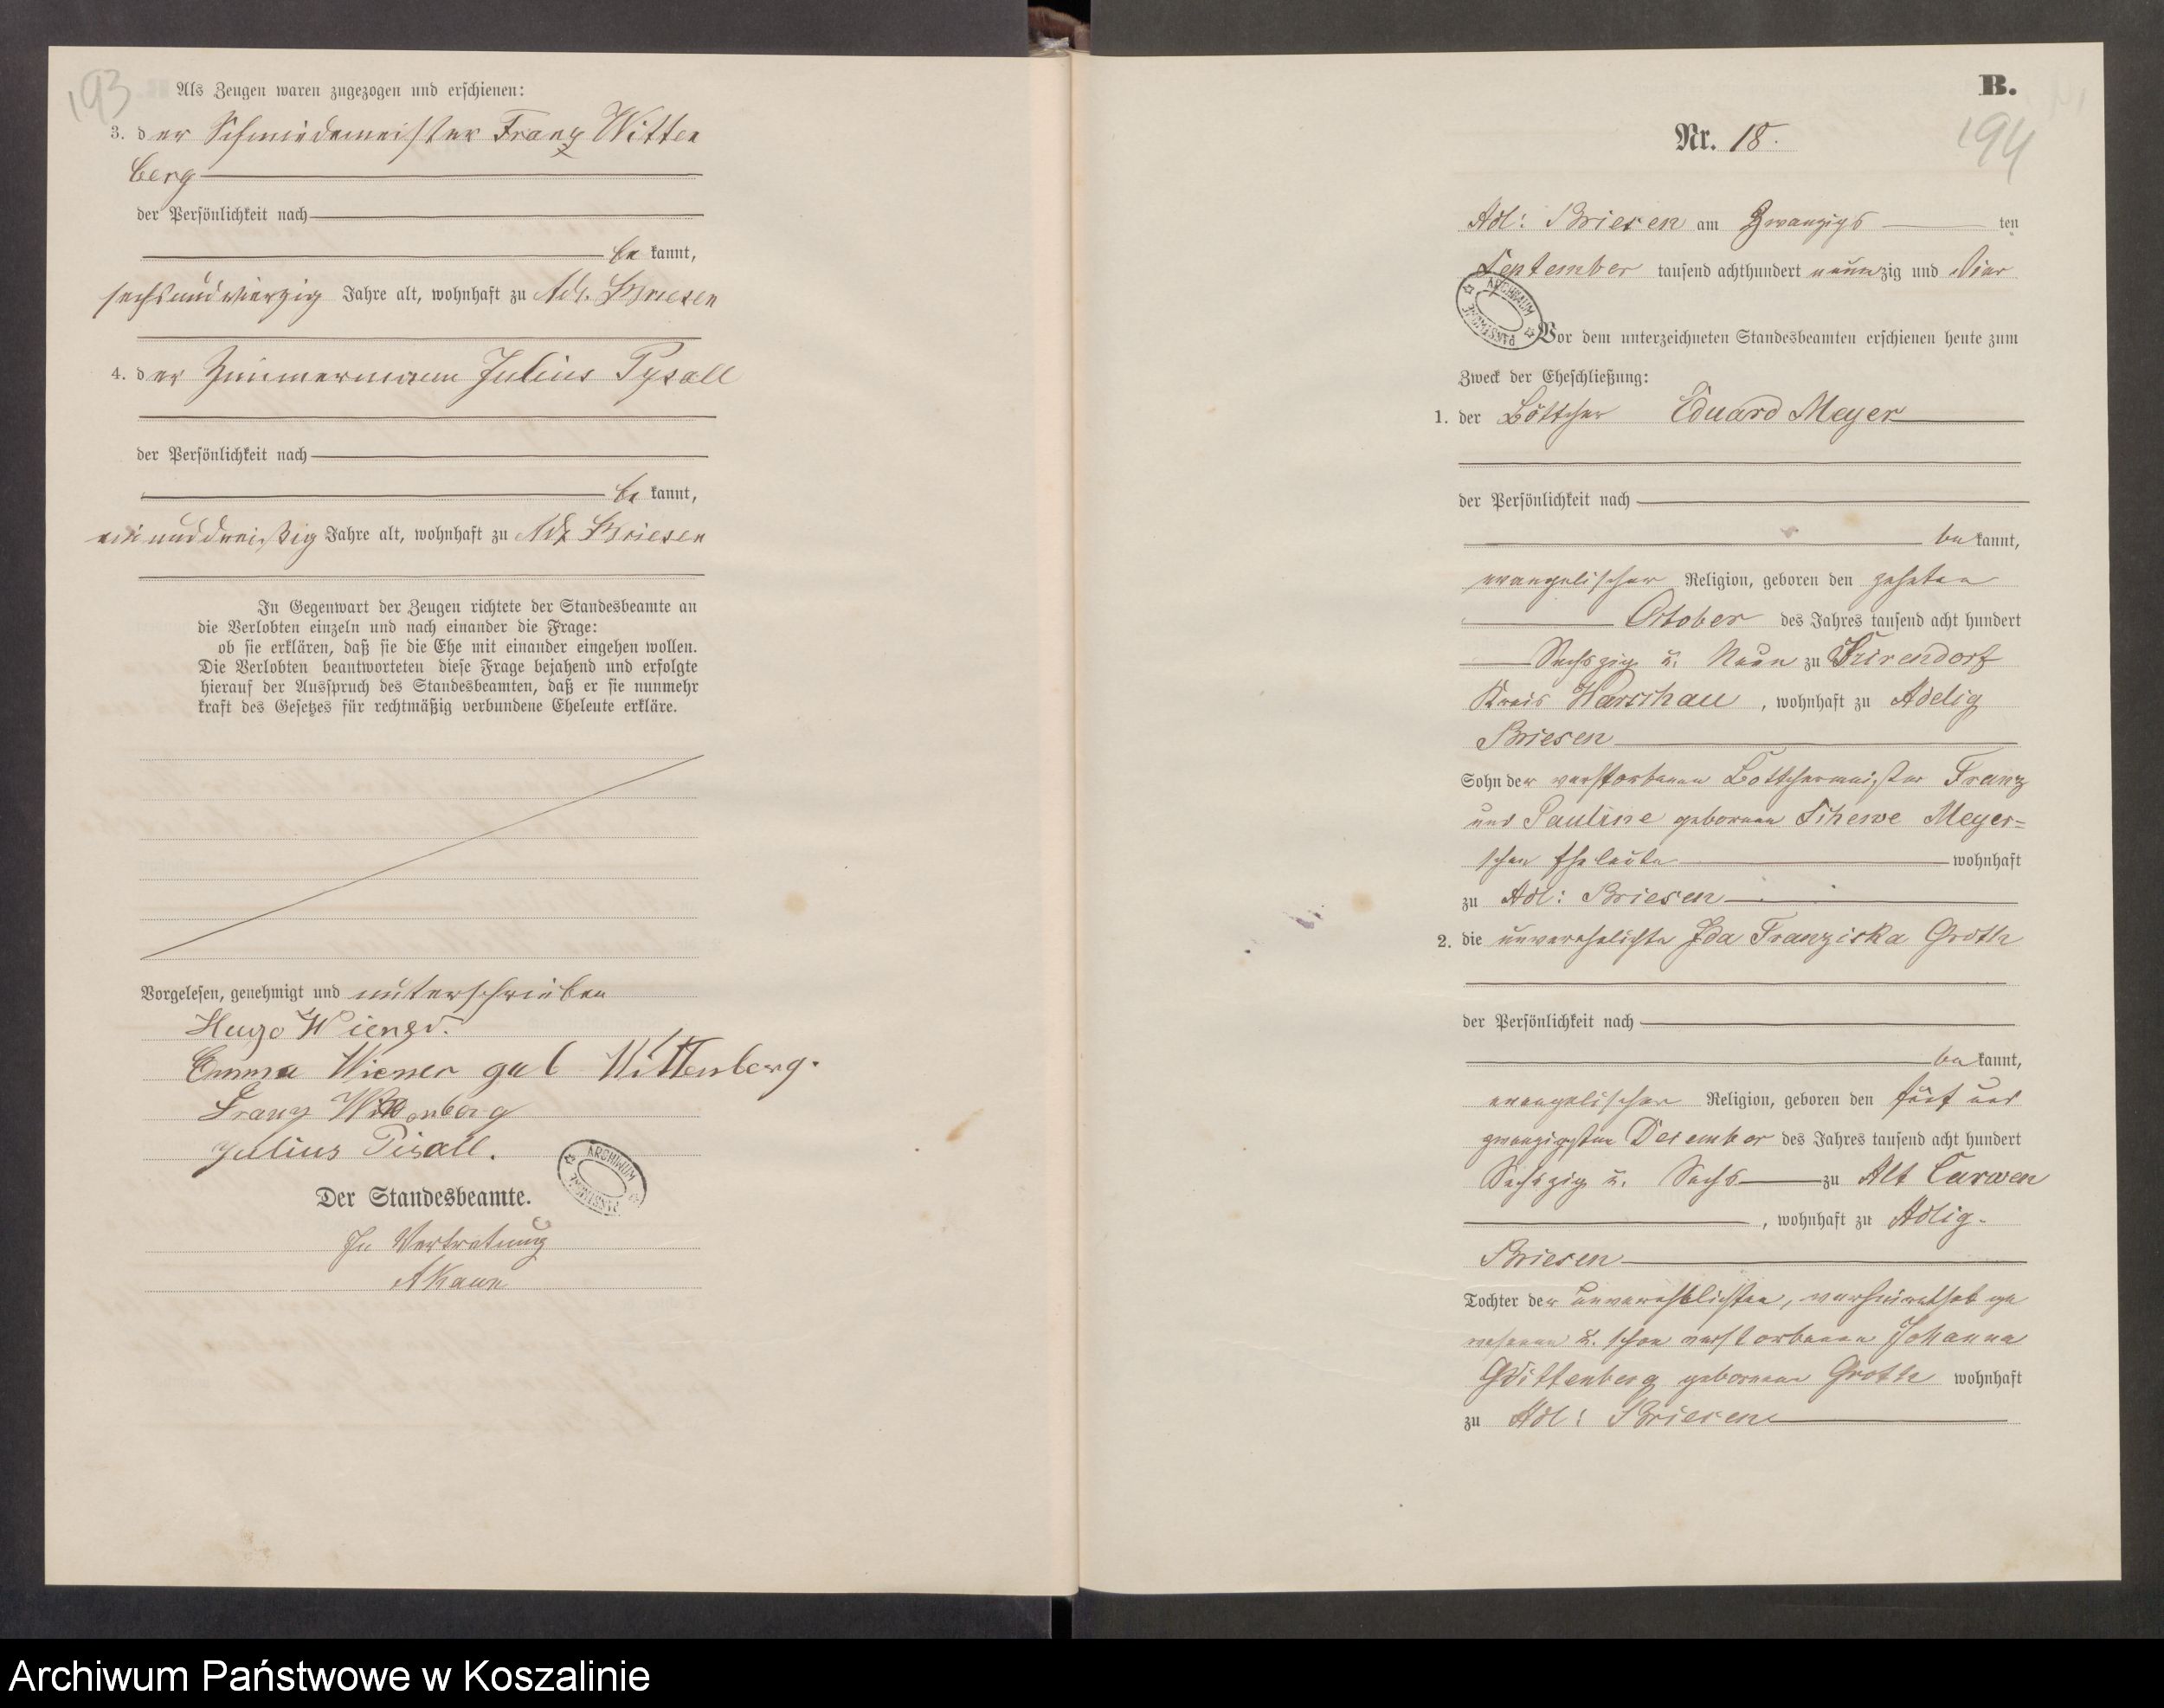 193
Als Zeugen waren zugezogen und erschienen:
3. der Schmiedemeister Franz Witten
berg
der Persönlichkeit nach
be kannt,
sechsundvierzig Jahre alt, wohnhaft zu Adl. Briesen
4. der Zimmermann Julius Pysall
der Persönlichkeit nach
be kannt,
einunddreißig Jahre alt, wohnhaft zu Adl. Briesen
In Gegenwart der Zeugen richtete der Standesbeamte an
die Verlobten einzeln und nach einander die Frage:
ob sie erklären, daß sie die Ehe mit einander eingehen wollen.
Die Verlobten beantworteten diese Frage bejahend und erfolgte
hierauf der Ausspruch des Standesbeamten, daß er sie nunmehr
kraft des Gesetzes für rechtmäßig verbundene Eheleute erkläre.
Vorgelesen, genehmigt und unterschrieben
Hugo Wiener.
Emma Wiener geb Wittenberg.
Franz Wittenberg
Julius Pisall.
ARCHIWUM
Der Standesbeamte.
In Vertretung
B.
194
Nr. 18.
Adl: Briesen am Zwanzigs ten
September tausend achthundert neunzig und Vier
ARCHIWUM
Vor dem unterzeichneten Standesbeamten erschienen heute zum
Zweck der Eheschließung:
1. der Böttcher Eduard Meyer
der Persönlichkeit nach
be kannt,
evangelischer Religion, geboren den zehnten
October des Jahres tausend acht hundert
Sechszig u. Neun zu
Kreis Warschau, wohnhaft zu Adelig
Briesen
Sohn der verstorbenen Bottchermeister Franz
und Pauline geborenen Meyer=
schen Eheleute wohnhaft
zu Adl: Briesen
2. die unverehelichte Ida Franziska Groth
der Persönlichkeit nach
be kannt,
evangelischer Religion, geboren den fünf und
zwanzigsten December des Jahres tausend acht hundert
Sechszig u. Sechs zu Alt Carwen
, wohnhaft zu Adlig-
Briesen
Tochter der unverehelichten, verheirathet ge
wesenen u. schon verstorbenen Johanna
Wittenberg geborenen Groth wohnhaft
zu Adl: Briesen
Archiwum Państwowe w Koszalinie